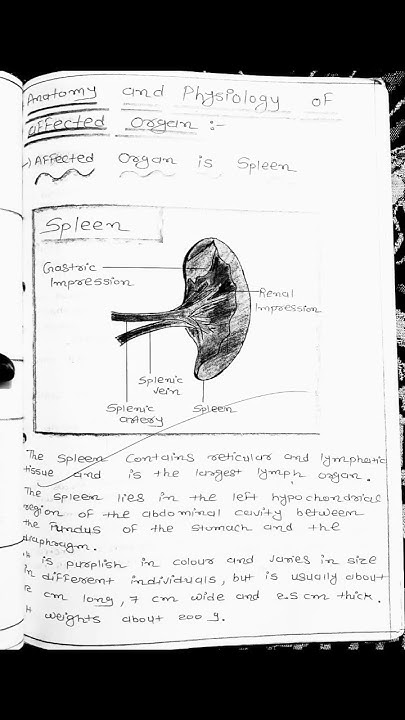 Anatomy and Physiology of
affected Organ :-
Affected Organ is Spleen
Spleen
Gastric
Impression
Renal
Impression
Splenic
vein
Splenic
artery
Spleen
The Spleen contains reticular and lymphatic
tissue and is the largest lymph organ.
The spleen lies in the left hypochondrial
region of the abdominal cavity between
the Fundus of the stomach and the
diaphragm.
It is purplish in colour and varies in size
in different individuals, but is usually about
cm long, 7 cm wide and 2.5 cm thick.
It weights about 200 g.